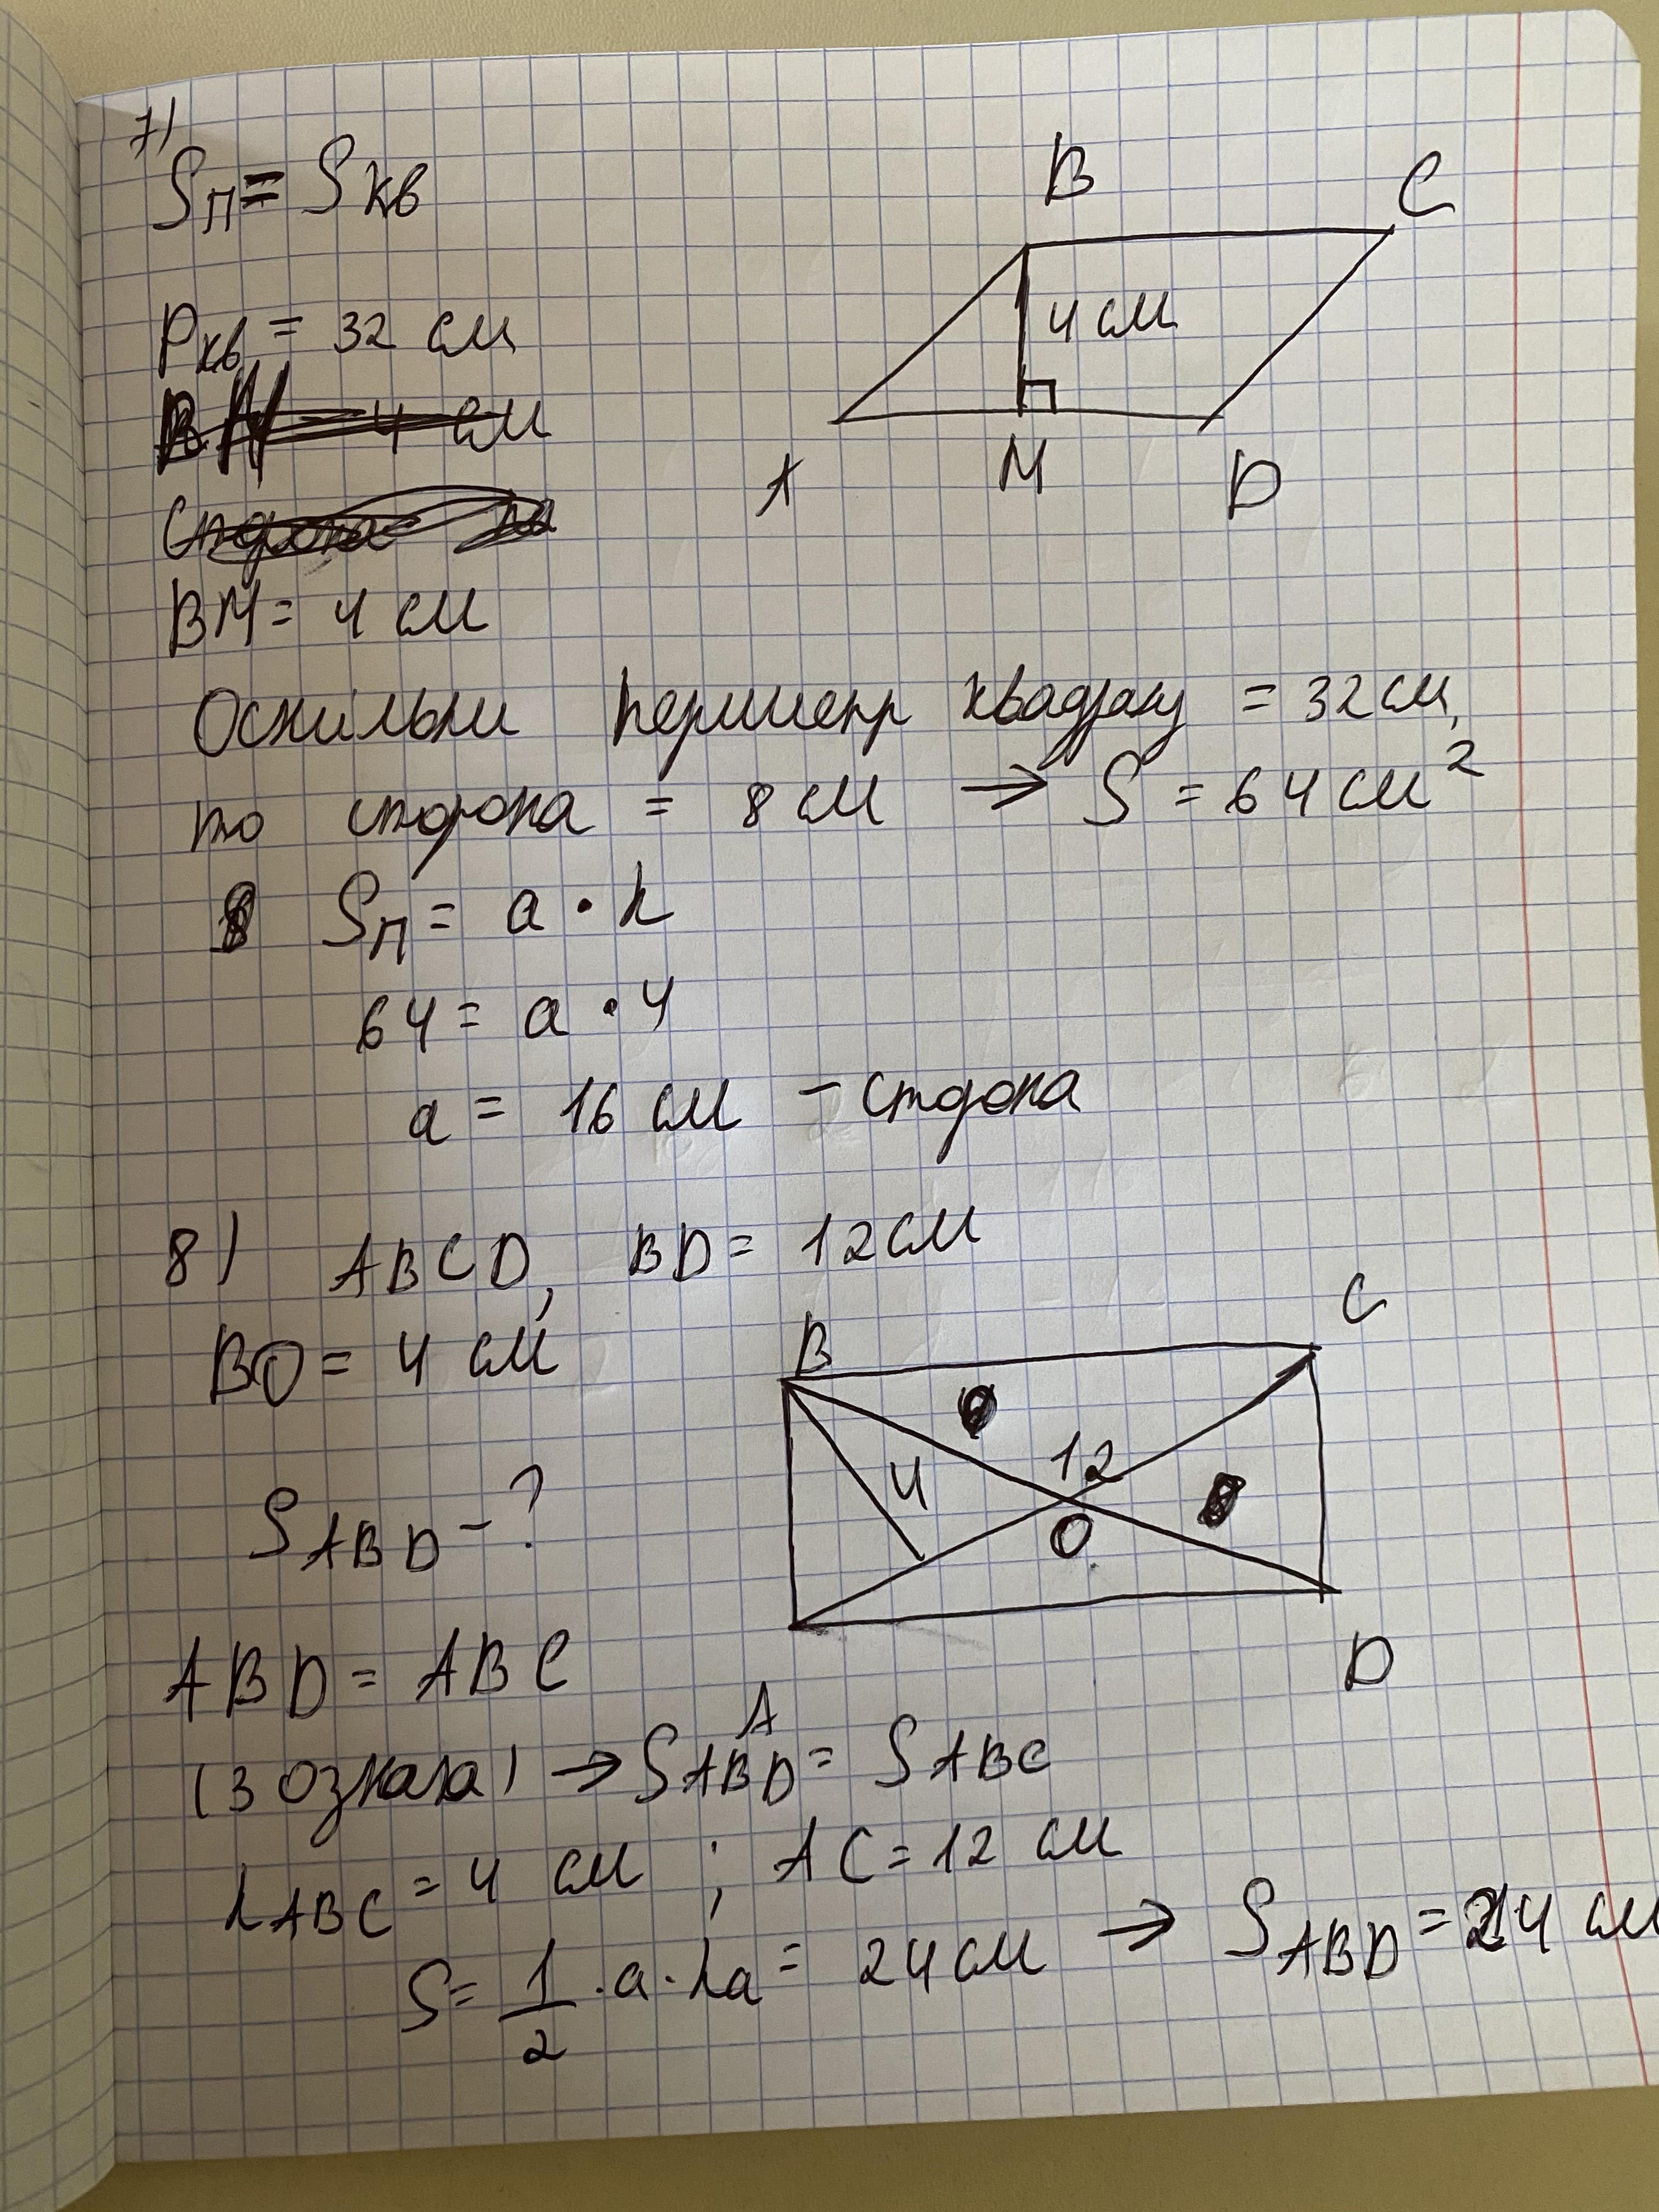 7)
Sп = Sкв
Pкв = 32 см
B C
4 см
A M D
BM = 4 см
Оскільки периметр квадрату = 32 см,
то сторона = 8 см → S = 64 см²
Sп = a · h
64 = a · 4
a = 16 см – сторона
8) ABCD, BD = 12 см
BO = 4 см
B C
4 12
O
A D
S ABD – ?
ABD = ABC
(3 ознака) → S ABD = S ABC
h ABC = 4 см ; AC = 12 см
S = 1/2 · a · ha = 24 см → S ABD = 24 см